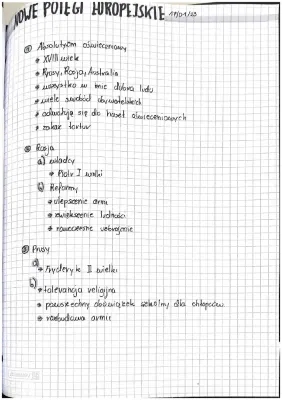 NOWE POTĘGI EUROPEJSKIE 17/01/23
① Absolutyzm oświeceniowy
* XVIII wiek
* Prusy, Rosja, Australia
* wszystko w imię dobra ludu
* wiele swobód obywatelskich
* odwołują się do haseł oświeceniowych
* zakaz tortur
② Rosja
a) władcy
* Piotr I wielki
b) Reformy
* ulepszenie armii
* zwiększenie ludności
* nowoczesne uzbrojenie
③ Prusy
a)
* Fryderyk II wielki
b)
* tolerancja religijna
* powszechny obowiązek szkolny dla chłopców
* rozbudowa armii